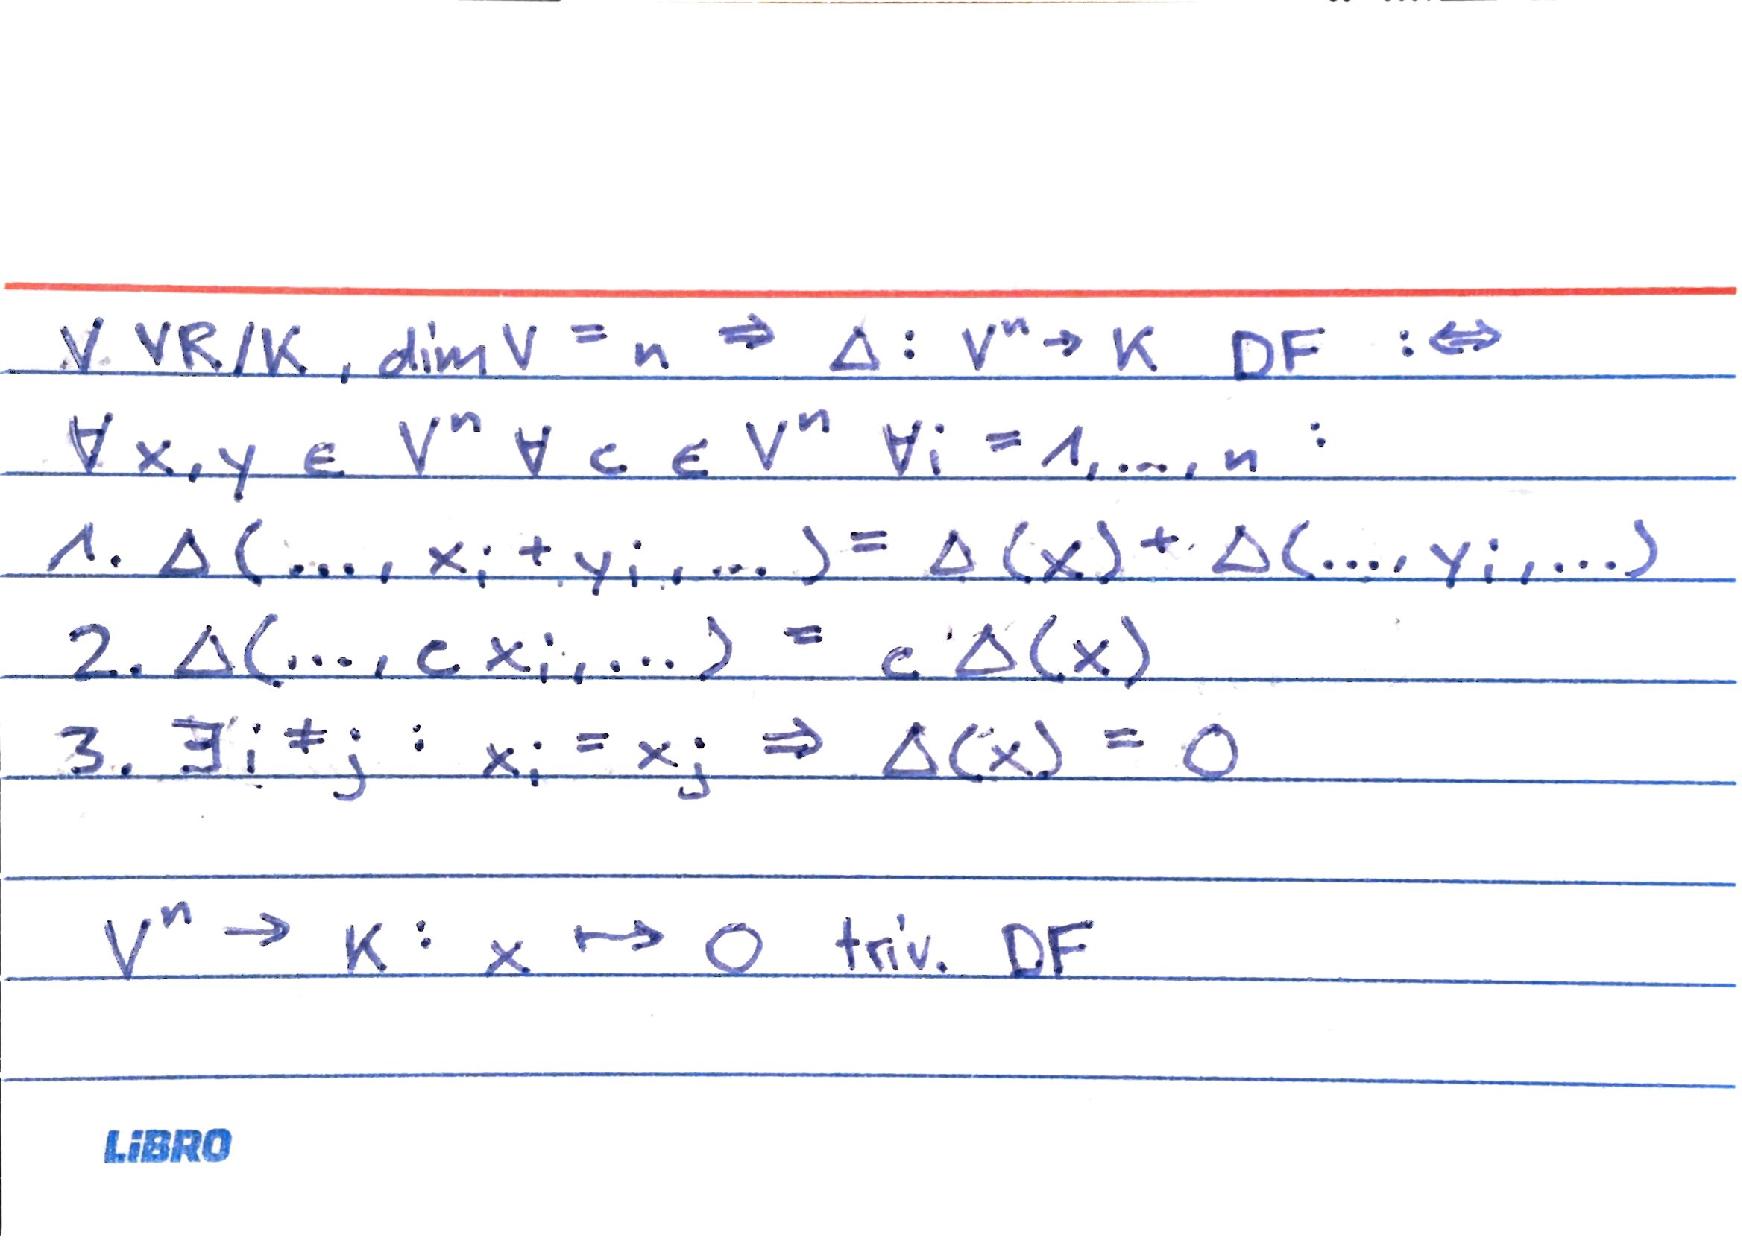 V VR/K, dim V = n ⇒ Δ: Vⁿ → K DF :⇔
∀ x, y ∈ Vⁿ ∀ c ∈ Vⁿ ∀i = 1, ..., n :
1. Δ(..., xᵢ + yᵢ, ...) = Δ(x) + Δ(..., yᵢ, ...)
2. Δ(..., c xᵢ, ...) = c Δ(x)
3. ∃ i ≠ j : xᵢ = xⱼ ⇒ Δ(x) = 0
Vⁿ → K : x ↦ 0 triv. DF
LiBRO